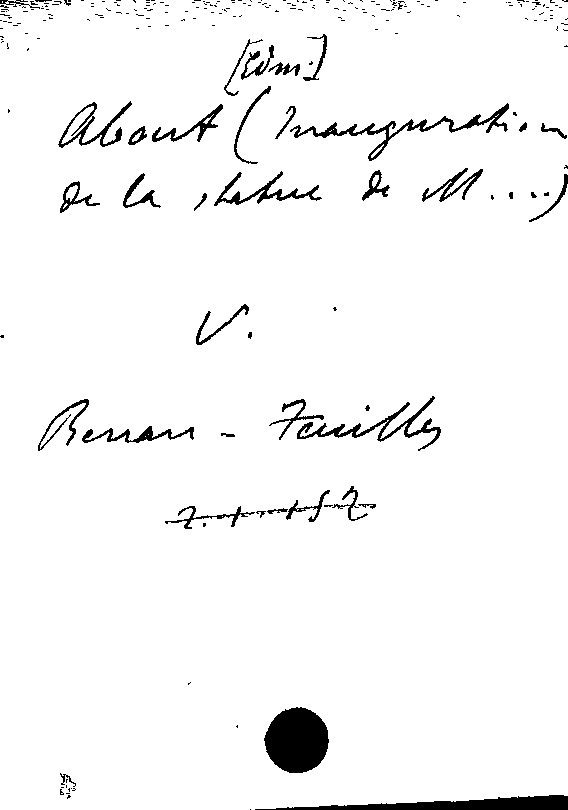 [Edm.]
About (Inauguration
de la statue de M....)
V.
Renan - Feuilles